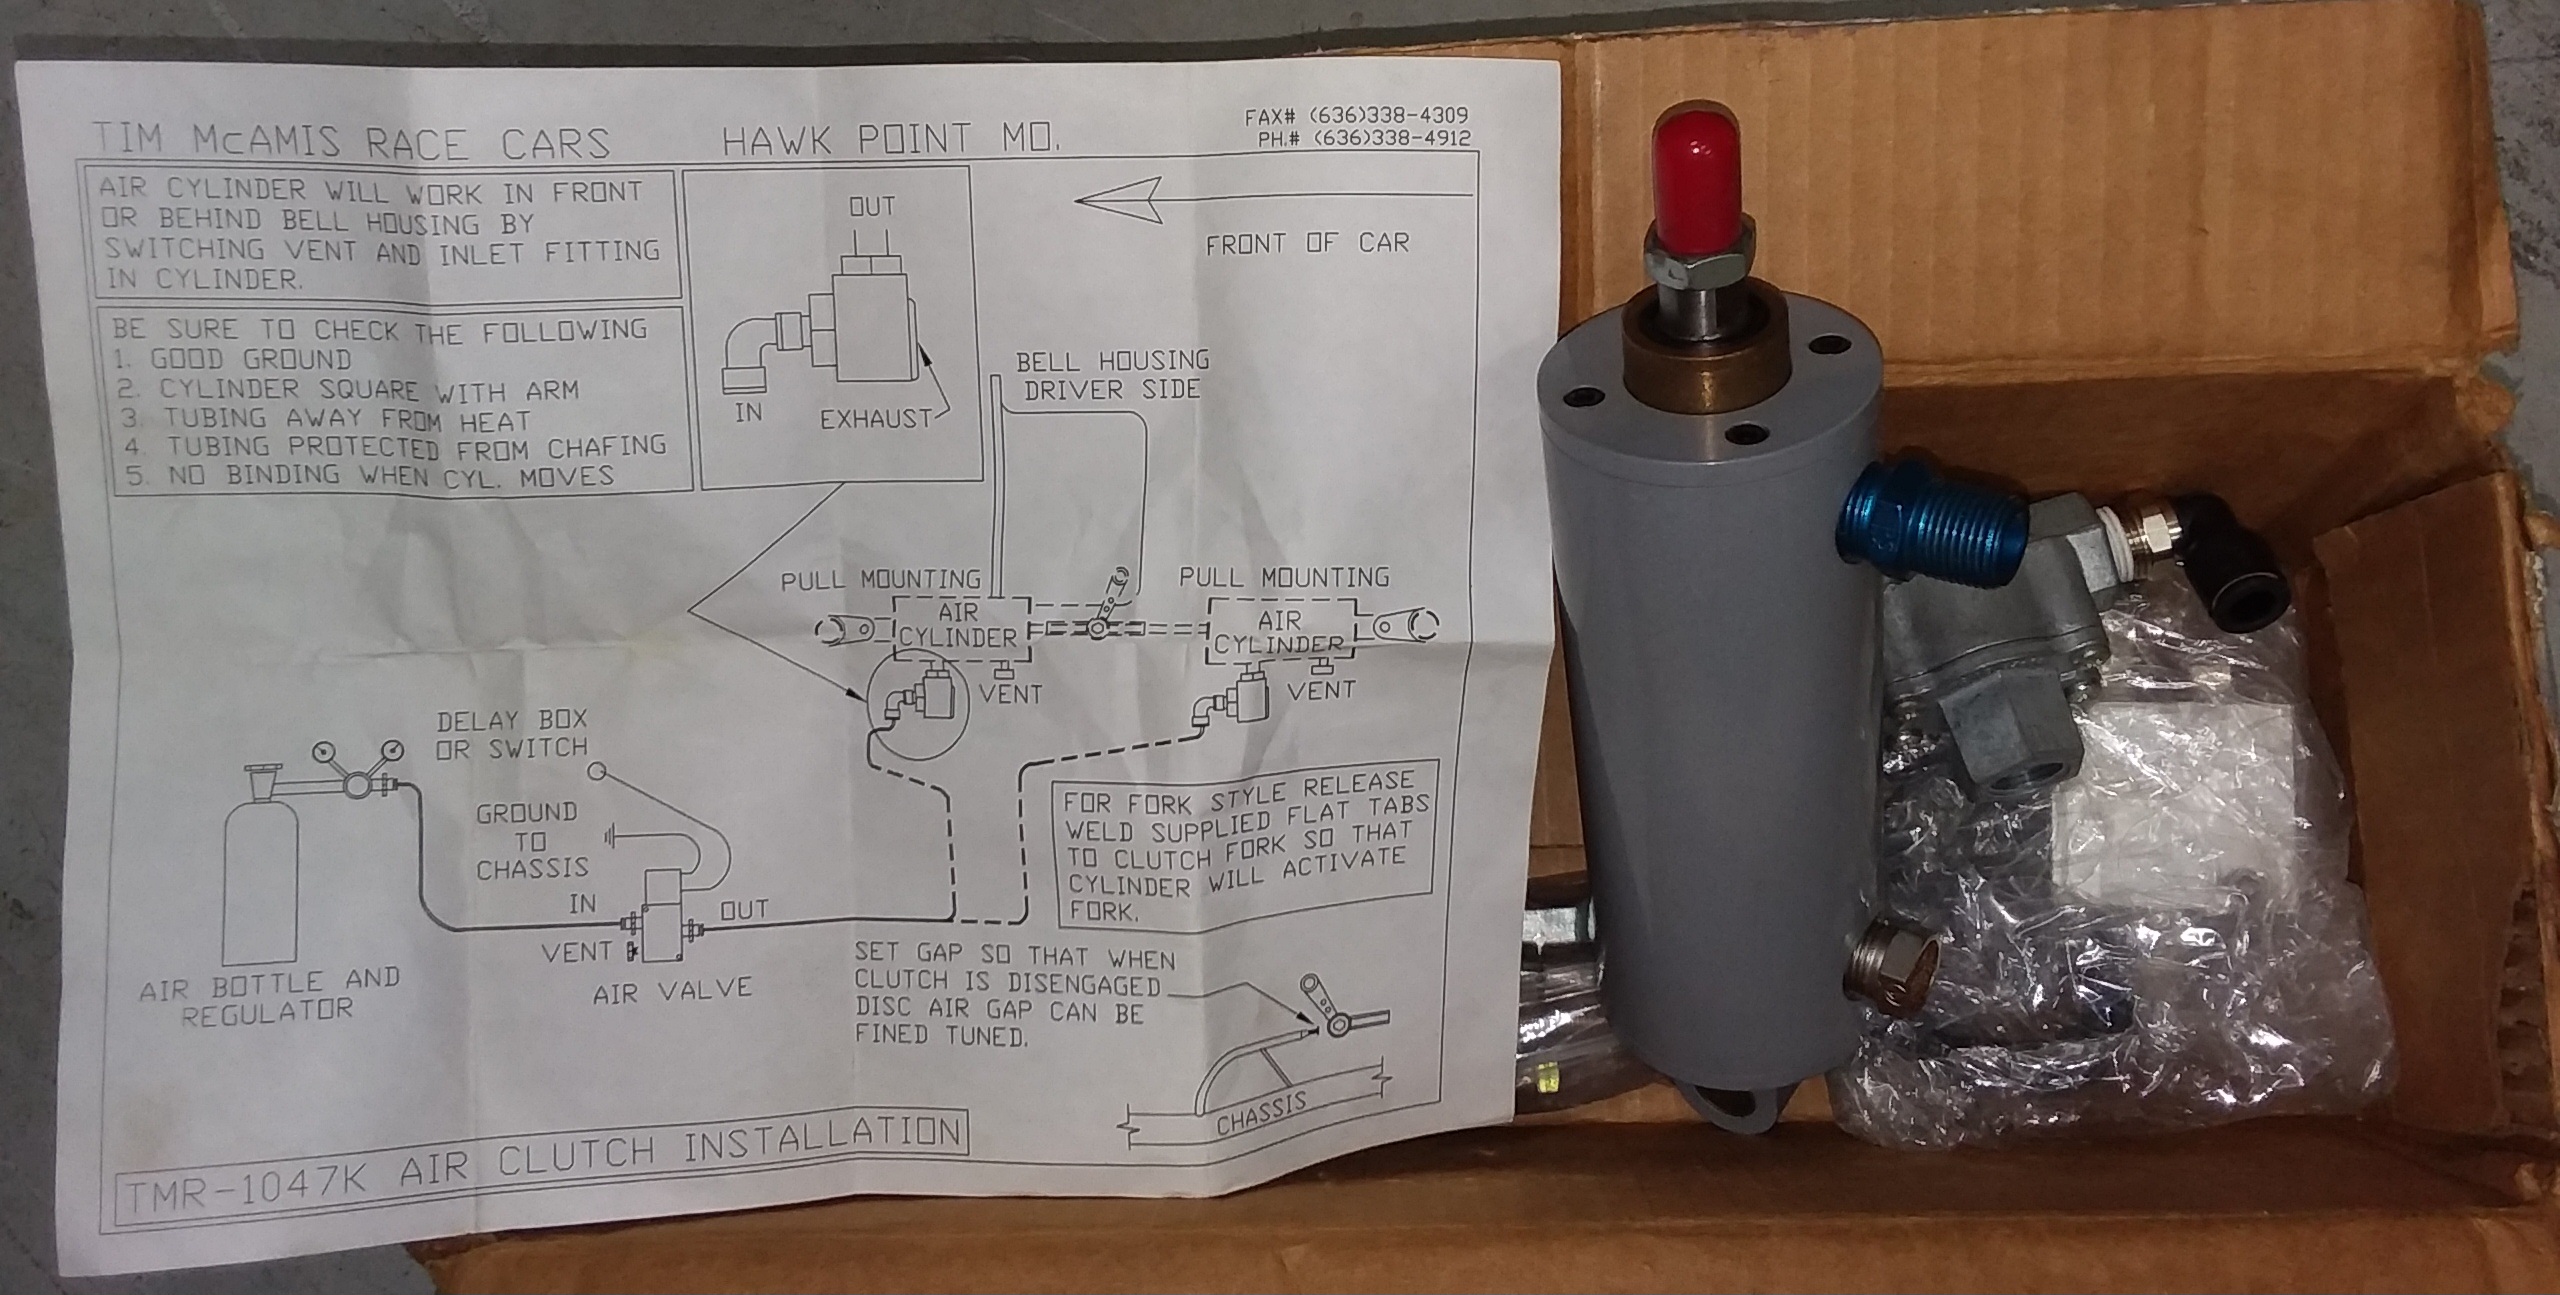 TIM McAMIS RACE CARS HAWK POINT MO.
FAX# (636)338-4309
PH.# (636)338-4912
AIR CYLINDER WILL WORK IN FRONT
OR BEHIND BELL HOUSING BY
SWITCHING VENT AND INLET FITTING
IN CYLINDER.
BE SURE TO CHECK THE FOLLOWING
1. GOOD GROUND
2. CYLINDER SQUARE WITH ARM
3. TUBING AWAY FROM HEAT
4. TUBING PROTECTED FROM CHAFING
5. NO BINDING WHEN CYL. MOVES
OUT
IN
EXHAUST
FRONT OF CAR
BELL HOUSING
DRIVER SIDE
PULL MOUNTING
AIR
CYLINDER
VENT
PULL MOUNTING
AIR
CYLINDER
VENT
DELAY BOX
OR SWITCH
GROUND
TO
CHASSIS
IN
OUT
VENT
AIR VALVE
AIR BOTTLE AND
REGULATOR
FOR FORK STYLE RELEASE
WELD SUPPLIED FLAT TABS
TO CLUTCH FORK SO THAT
CYLINDER WILL ACTIVATE
FORK.
SET GAP SO THAT WHEN
CLUTCH IS DISENGAGED
DISC AIR GAP CAN BE
FINED TUNED.
CHASSIS
TMR-1047K AIR CLUTCH INSTALLATION